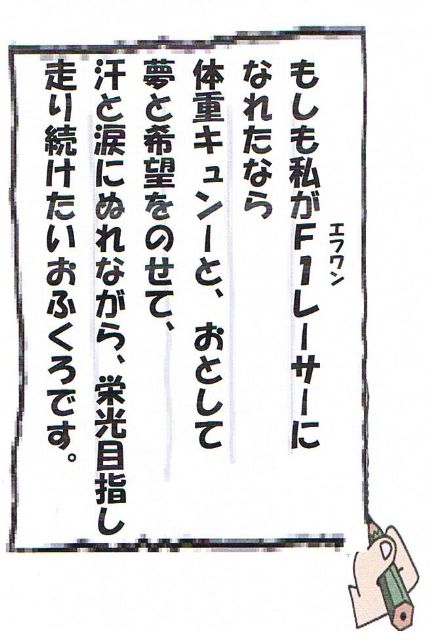 もしも私がF1レーサーに
エフワン
なれたなら
体重キュンーと、おとして
夢と希望をのせて、
汗と涙にぬれながら、栄光目指し
走り続けたいおふくろです。